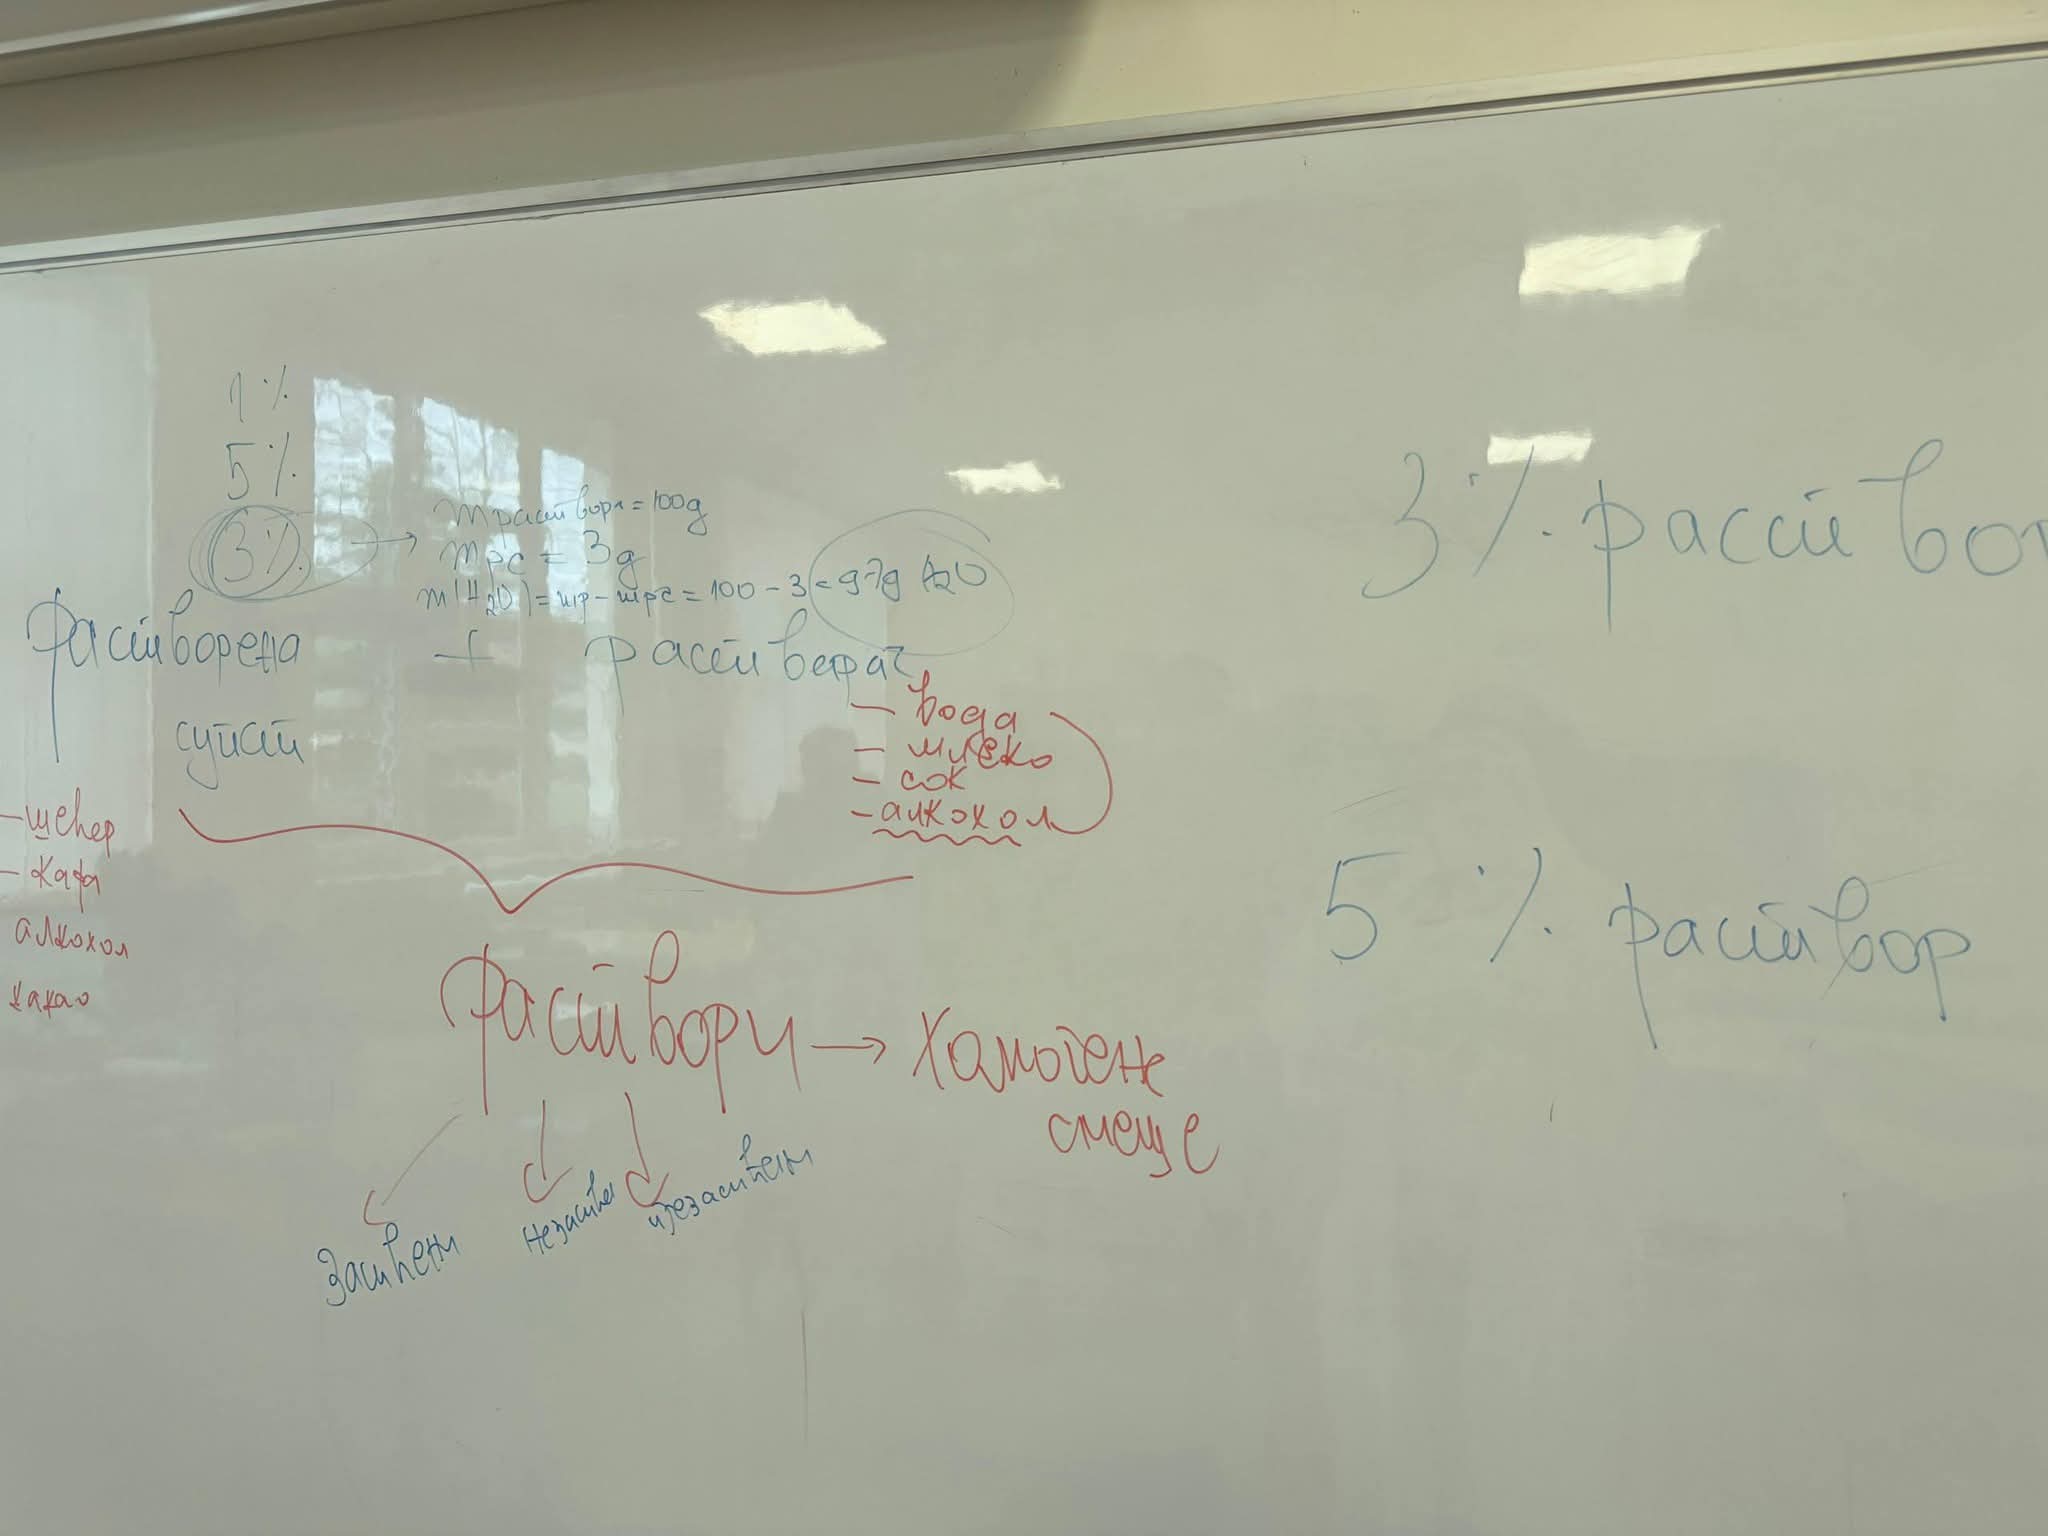 1%
5%
3% → mраствора = 100g
mрс = 3g
m(H2O) = mр - mрс = 100 - 3 = 97g H2O
растворена + растварач
супст
- шећер
- кафа
алкохол
какао
- вода
- млеко
- сок
- алкохол
раствори → хомогене
смеше
засићени
незасиће
презасићени
3% раство
5% раствор